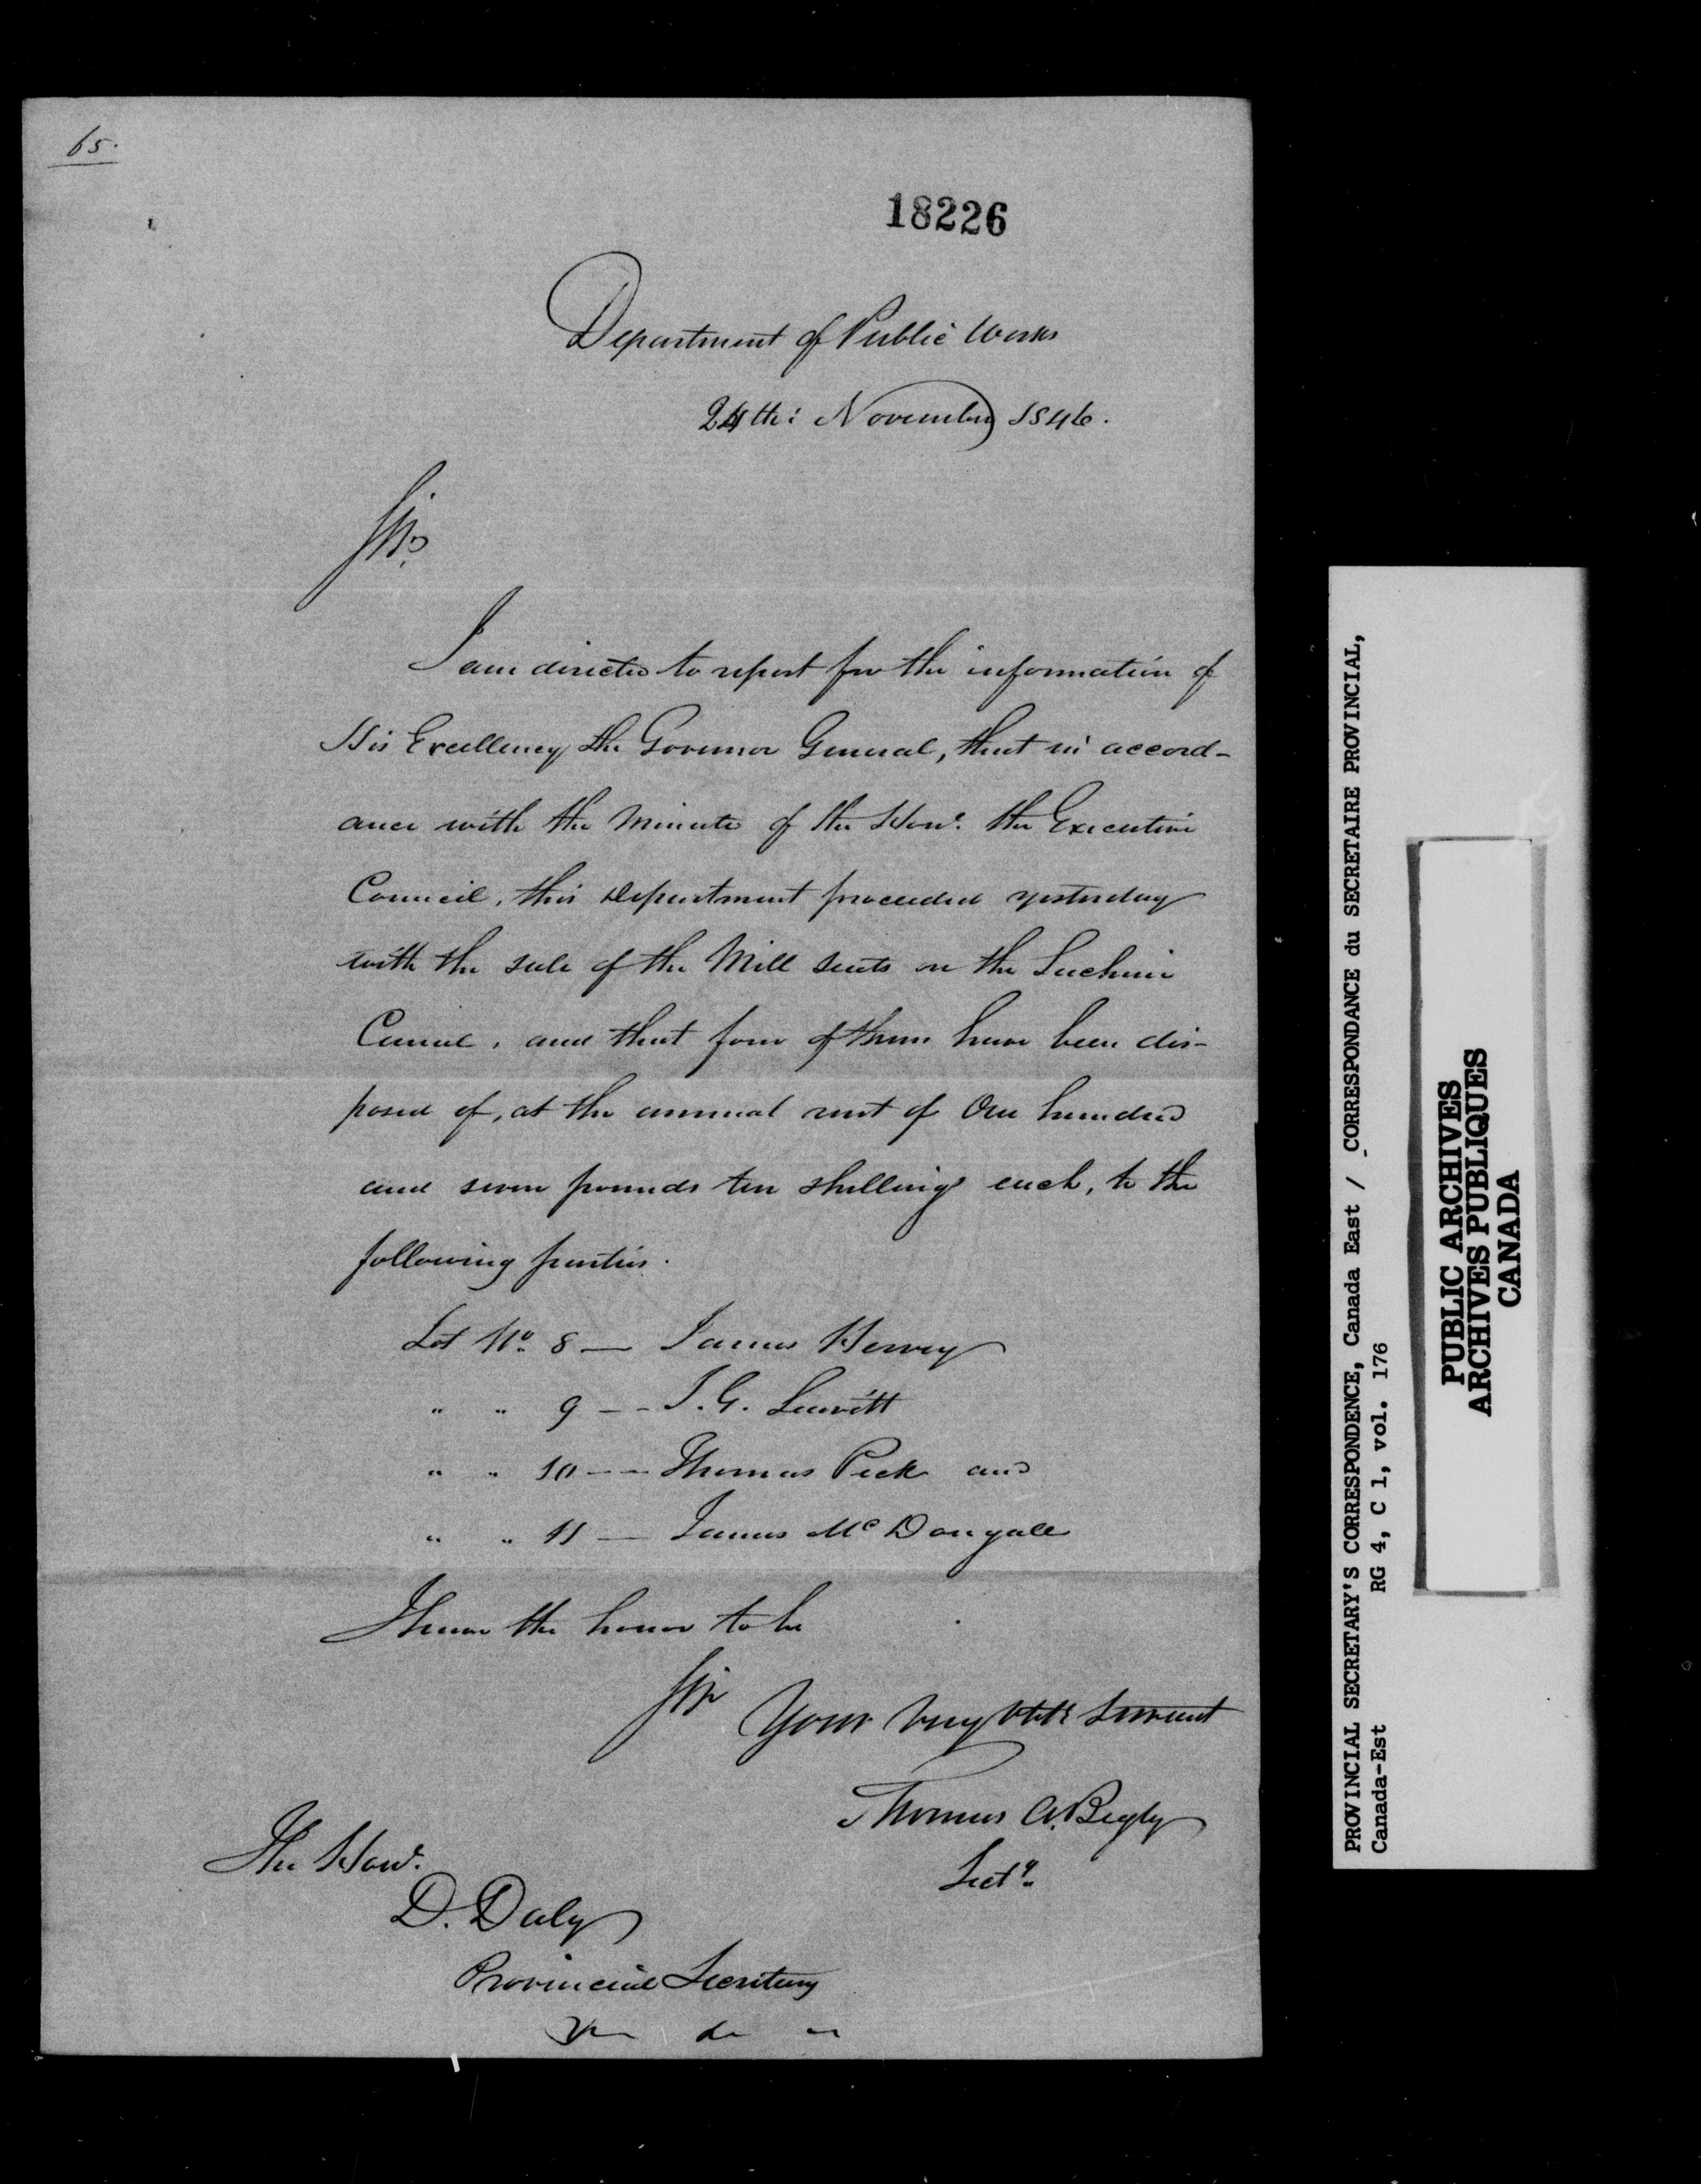 65.
18226
Department of Public Works
24th: November 1846.
Sir,
I am directed to report for the information of
His Excellency the Governor General, that in accord-
ance with the Minute of the Hon. the Executive
Council, this Department proceeded yesterday
with the sale of the Mill seats on the Lachine
Canal, and that four of them have been dis-
posed of, at the annual rent of One hundred
and seven pounds ten shillings each, to the
following parties.
Lot No. 8 — James Henry
" " 9 — — J. G. Leavitt
" " 10 — — Thomas Peck and
" " 11 — James McDougall
I have the honor to be
Sir
Your very obdt Servant
Thomas A. Begly
Secty.
The Hon.
D. Daly
Provincial Secretary
PROVINCIAL SECRETARY'S CORRESPONDENCE, Canada East / CORRESPONDANCE du SECRETAIRE PROVINCIAL,
Canada-Est RG 4, C 1, vol. 176
PUBLIC ARCHIVES
ARCHIVES PUBLIQUES
CANADA